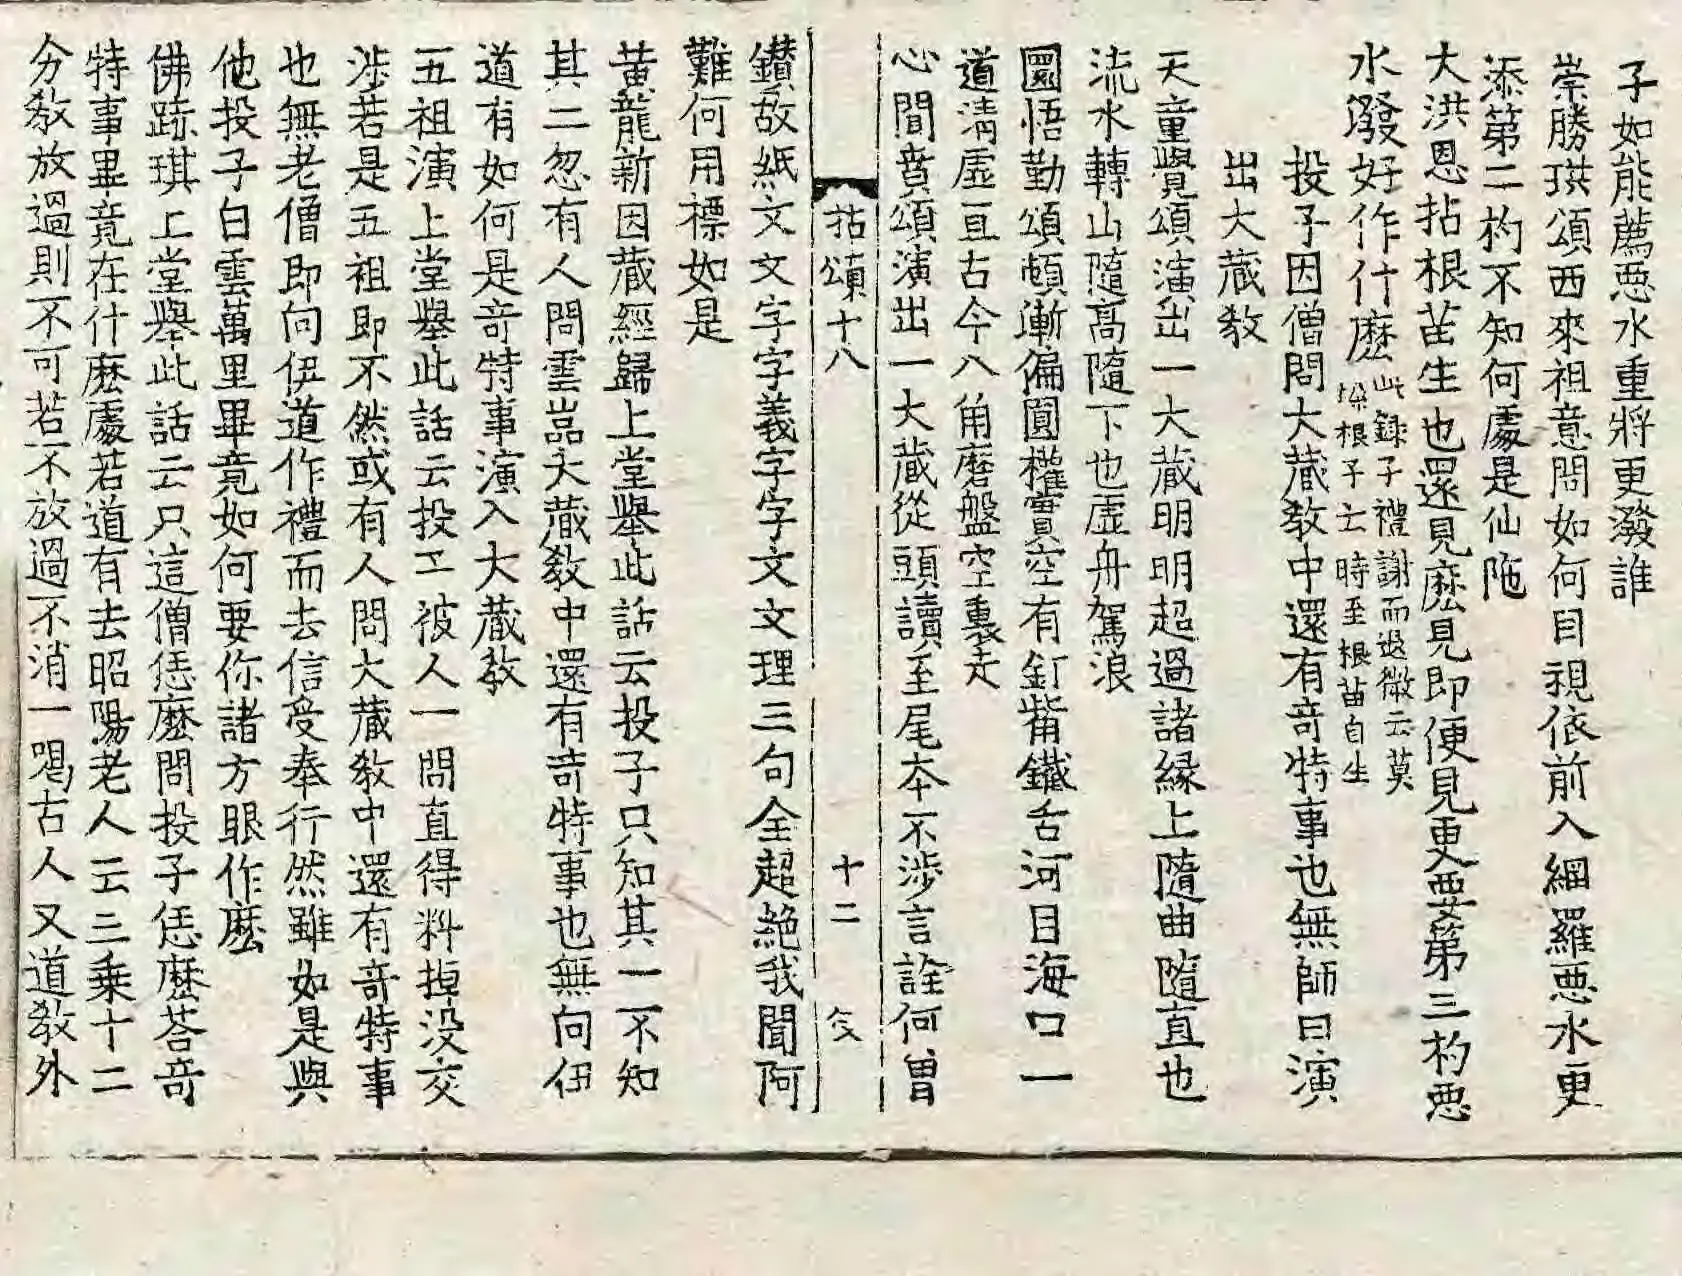 子如能薦惡水重將更潑誰
崇勝珙頌西來祖意問如何目視依前入網羅惡水更
添第二杓不知何處是仙陁
大洪恩拈根苗生也還見麽見即便見更要第三杓惡
水潑好作什麽此錄子禮謝而退徹云莫
垜根子云時至根苗自生
投子因僧問大藏敎中還有竒特事也無師曰演
出大藏敎
天童覺頌演出一大藏明明超過諸緣上隨曲隨直也
流水轉山隨高隨下也虛舟駕浪
圜悟勤頌頓漸偏圓權實空有釘觜鐵舌河目海口一
道淸虛亘古今八角磨盤空裏走
心聞賁頌演出一大藏從頭讀至尾夲不涉言詮何曾
拈頌十八 十二 文
鑽故紙文文字字義字字文文理三句全超絶我聞阿
難何用標如是
黃龍新因藏經歸上堂擧此話云投子只知其一不知
其二忽有人問雲嵓大藏敎中還有竒特事也無向伊
道有如何是竒特事演入大藏敎
五祖演上堂擧此話云投子被人一問直得料掉没交
涉若是五祖即不然或有人問大藏敎中還有竒特事
也無老僧即向伊道作禮而去信受奉行然雖如是與
他投子白雲萬里畢竟如何要你諸方眼作麽
佛跡琪上堂擧此話云只這僧恁麽問投子恁麽荅竒
特事畢竟在什麽處若道有去昭陽老人云三乘十二
分敎放過則不可若不放過不消一喝古人又道敎外